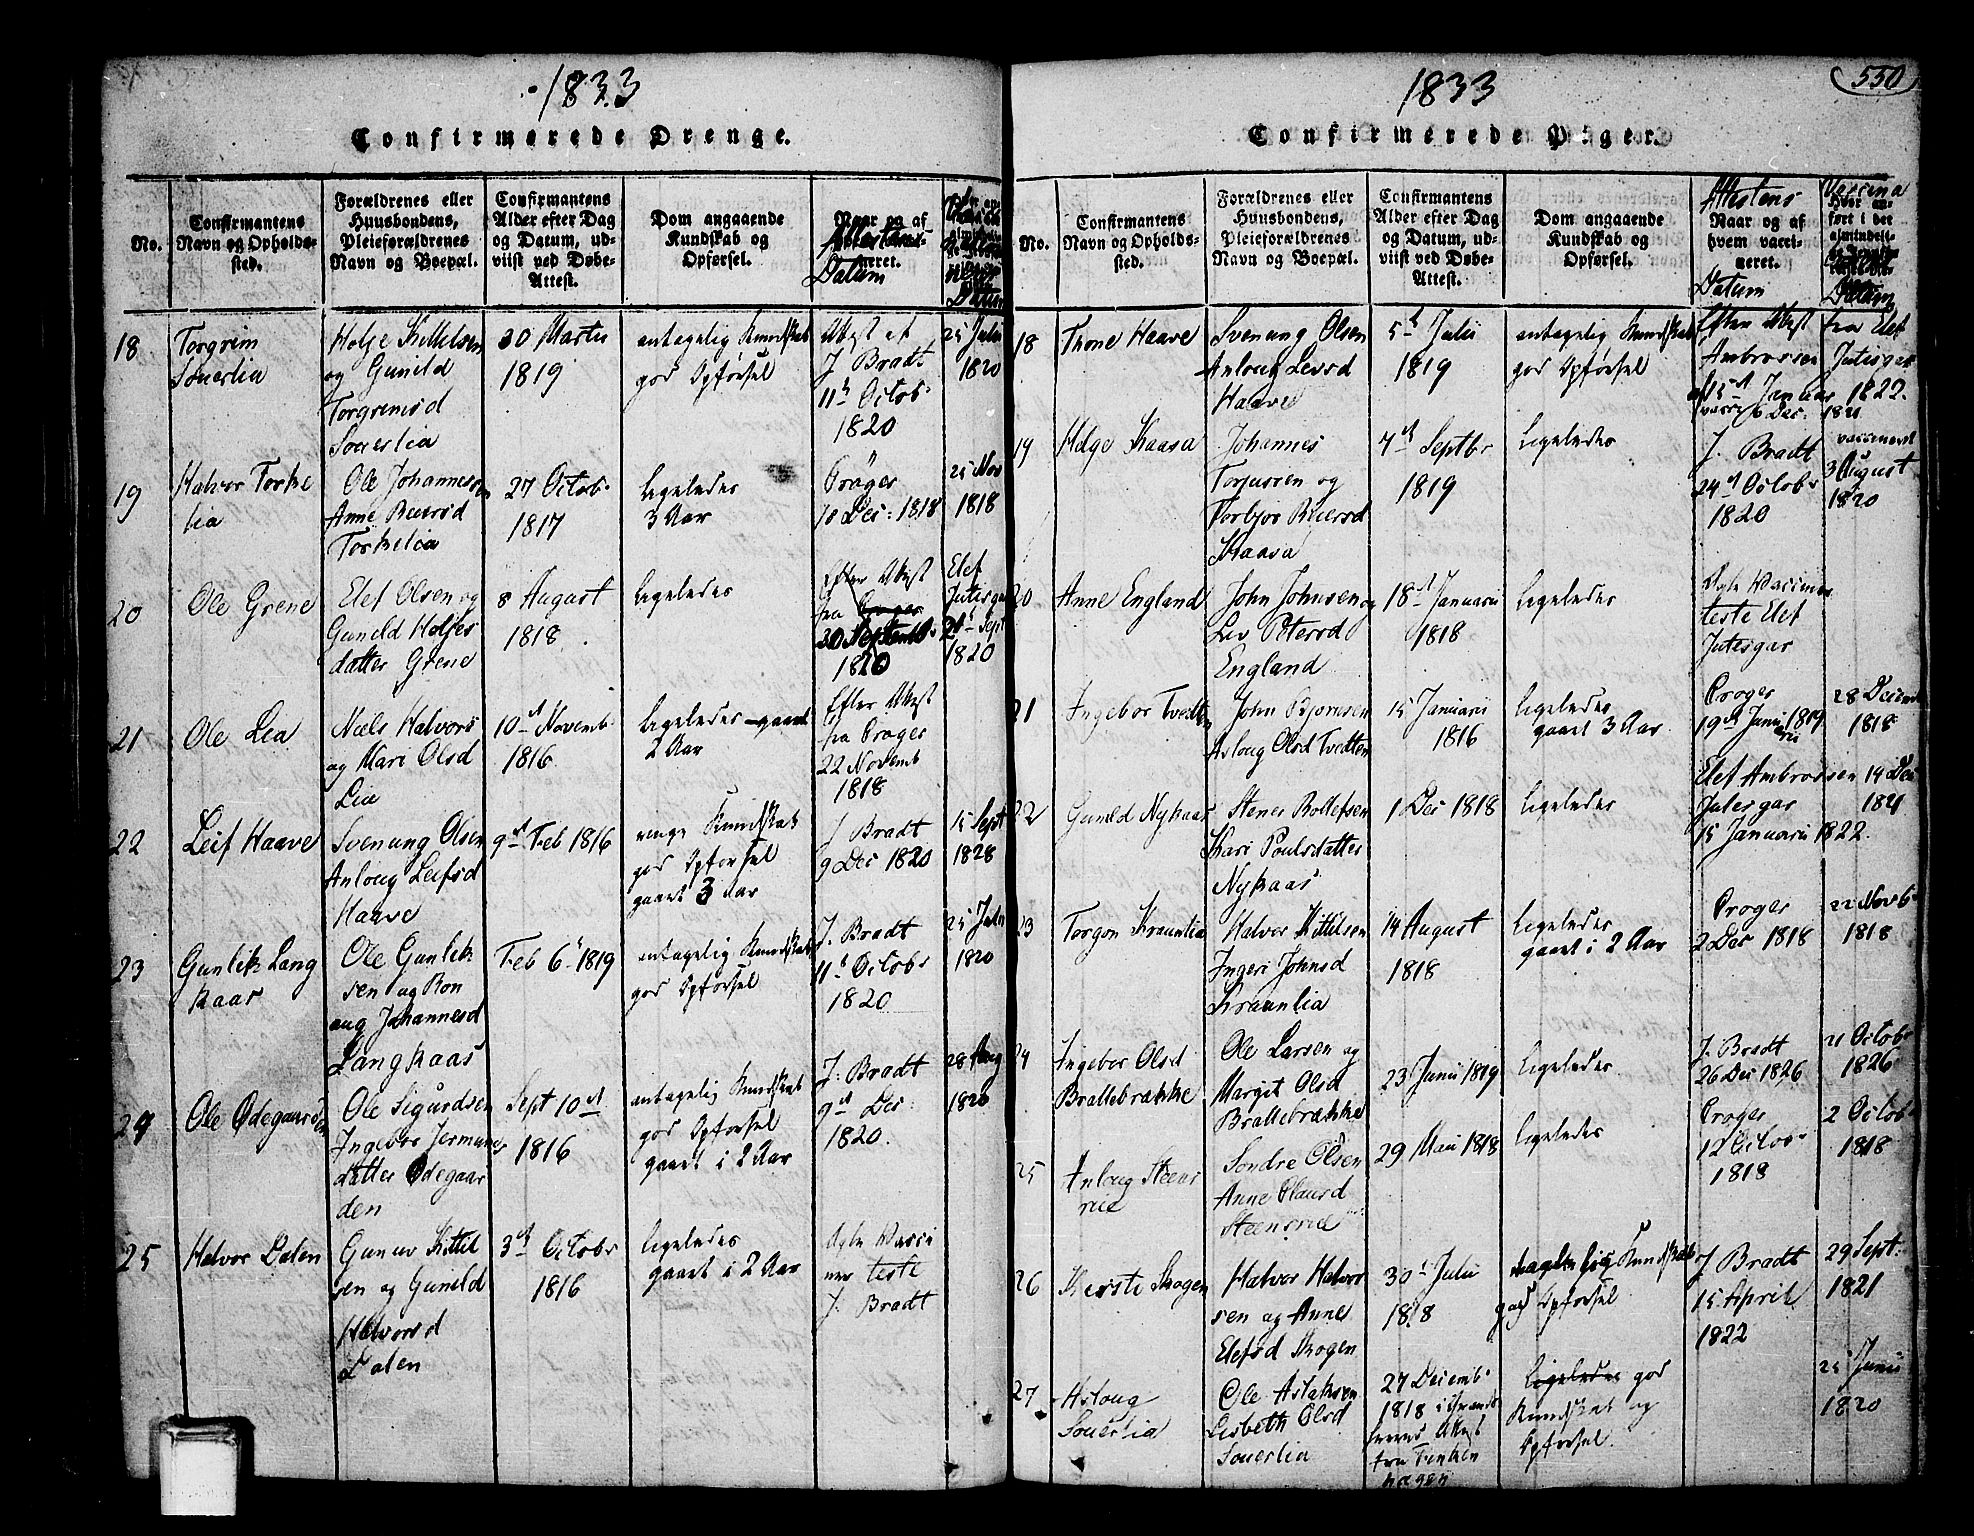 1833
Confirmerede Drenge.
No.
Confirmantens
Navn og Opholds-
sted.
Forældrenes eller
Huusbondens,
Pleieforældrenes
Navn og Boepæl.
Confirmantens
Alder efter Dag
og Datum, ud-
viist ved Døbe-
Attest.
Dom angaaende
Kundskab og
Opførsel.
Naar og af
Attestens
Datum
neret.
Datum
18
Torgrim
Souerlia
Holje Kittelsen
og Gunild
Torgrimsd
Souerlia
30 Martii
1819
antagelig Kundskab
god Opførsel
Attest af
J Bradt
11h Octob.
1820
25 Julii
1820
19
Halvor Torke
lia
Ole Johannessen
Anne Buersd
Torkelia
27 Octob.
1817
ligeledes
3 Aar
Crøger
18 Dec: 1818
25 Nov
1818
20
Ole Grene
Elef Olsen og
Gunild Holjes
datter Grene
8 August
1818
ligeledes
Efter Attest
fra
30 Septemb.
1820
Elef
Jutesgar
21 Sept
1820
21
Ole Lia
Niels Halvors
og Mari Olsd
Lia
10 Novemb
1816.
ligeledes gaaet
2 Aar
Efter Attest
fra Crøger
22 Novemb
1818
22
Leif Haave
Svenung Olsen
Anloug Leifsd
Haave
9 Feb 1816
ringe Kundskab
god Opførsel
gaaet 3 Aar
J Bradt
9 Dec 1820
15 Sept
1828
23
Gunlik Lang
kaas
Ole Gunlik
sen og Ron
aug Johannesd
Langkaas
Feb 6 1819
antagelig Kundskab
god Opførsel
J. Bradt
11h Octobr
1820
25 Julii
1820
24
Ole Ødegaarden
Ole Sigurdsen
Ingebor
datter Ødegaar
den
Sept 10
1816
antagelig Kundskab
god Opførsel
gaaet i 2 Aar
J. Bradt
9 Dec:
1820.
28 Aug
1820
25
Halvor Dalen
Gunuv Kittil
sen og Gunild
Halvorsd
Dalen
3 Octobr
1816
ligeledes
gaaet i 2 Aar
teste
J. Bradt
1833
550
Confirmerede Piger.
No.
Confirmantens
Navn og Opholds-
sted.
Forældrenes eller
Huusbondens,
Pleieforældrenes
Navn og Boepæl.
Confirmantens
Alder efter Dag
og Datum, ud-
viist ved Døbe-
Attest.
Dom angaaende
Kundskab og
Opførsel.
Attestens
Naar og af
hvem vacci-
neret.
Datum
Vaccina
ført i det
almindel.
Datum
18
Thone Haave
Svenung Olsen
Anloug Levsd
Haave
5 Julii
1819
antagelig Kundskab
god Opførsel
Efter Attest fra Elef
Ambrossen Jutesgar
15 Januar 1822.
6 Dec: 1821
19
Helge Kaasa
Johannes
Torjussen og
Torbjør Buersd
Kaasa
7 Septbr
1819
ligeledes
J. Bradt
24 Octobr
1820
vaccineret
3 August
1820
20
Anne England
John Johnsen og
Liv Petersd
England
18 Januarii
1818
ligeledes
teste Elef
Jutesgar
21
Ingebor Tvedten
John Bjørnsen
Asloug Olsd Tvedten
15 Januarii
1816
ligeledes
gaaet 3 Aar
Crøger
19 1819
28 Decemb
1818
22
Gunild Nykaas
Stener Rollefsen
Kari Poulsdatter
Nykaas
1 Dec 1818
ligeledes
Elef Ambrossen
Jutesgar
15 Januarii 1822.
14 Dec
1821
23
Torgon Kraunlia
Halvor Kittilsen
Ingeri Johnsd
Kraunlia
14 August
1818
ligeledes
gaaet i 2 Aar
Crøger
2 Dec 1818
22 Novb.
1818
24
Ingebor Olsd
Brattebrække
Ole Larsen og
Margit Olsd
Brattebrække
23 Junii 1819
ligeledes
J. Bradt
26 Dec 1826
21 Octobr
1826
25
Anloug Steens
rud
Sondre Olsen
Anne Olausd
Steensrud
29 Maii 1818
ligeledes
Crøger
12 Octob.
1818
2 Octob.
1818
26
Kirste Skogen
Halvor Halvor
sen og Anne
Elefsd Skogen
30 Julii
1818
antagelig Kundskab
god Opførsel
J Bradt
15 April
1822
29 Sept.
1821
27
Asloug
Souerlia
Ole Aslaksen
Lisbeth Olsd
Souerlia
27 Decemb.
1818
Attest
fra
ligeledes god
Kundskab og
Opførsel.
25 Junii
1820